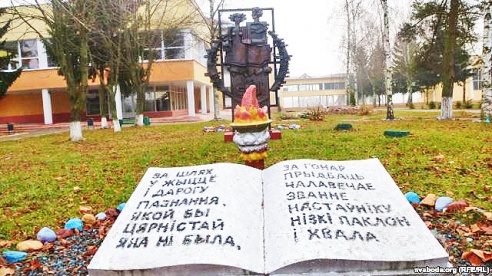 ЗА ШЛЯХ
У ЖЫЦЦЕ
І ДАРОГУ
ПАЗНАННЯ,
ЯКОЙ БЫ
ЦЯРНІСТАЙ
ЯНА НІ БЫЛА,
ЗА ГОНАР
ПРЫДБАЦЬ
ЧАЛАВЕЧАЕ
ЗВАННЕ
НАСТАЎНІКУ
НІЗКІ ПАКЛОН
І ХВАЛА
svaboda.org (RFE/RL)